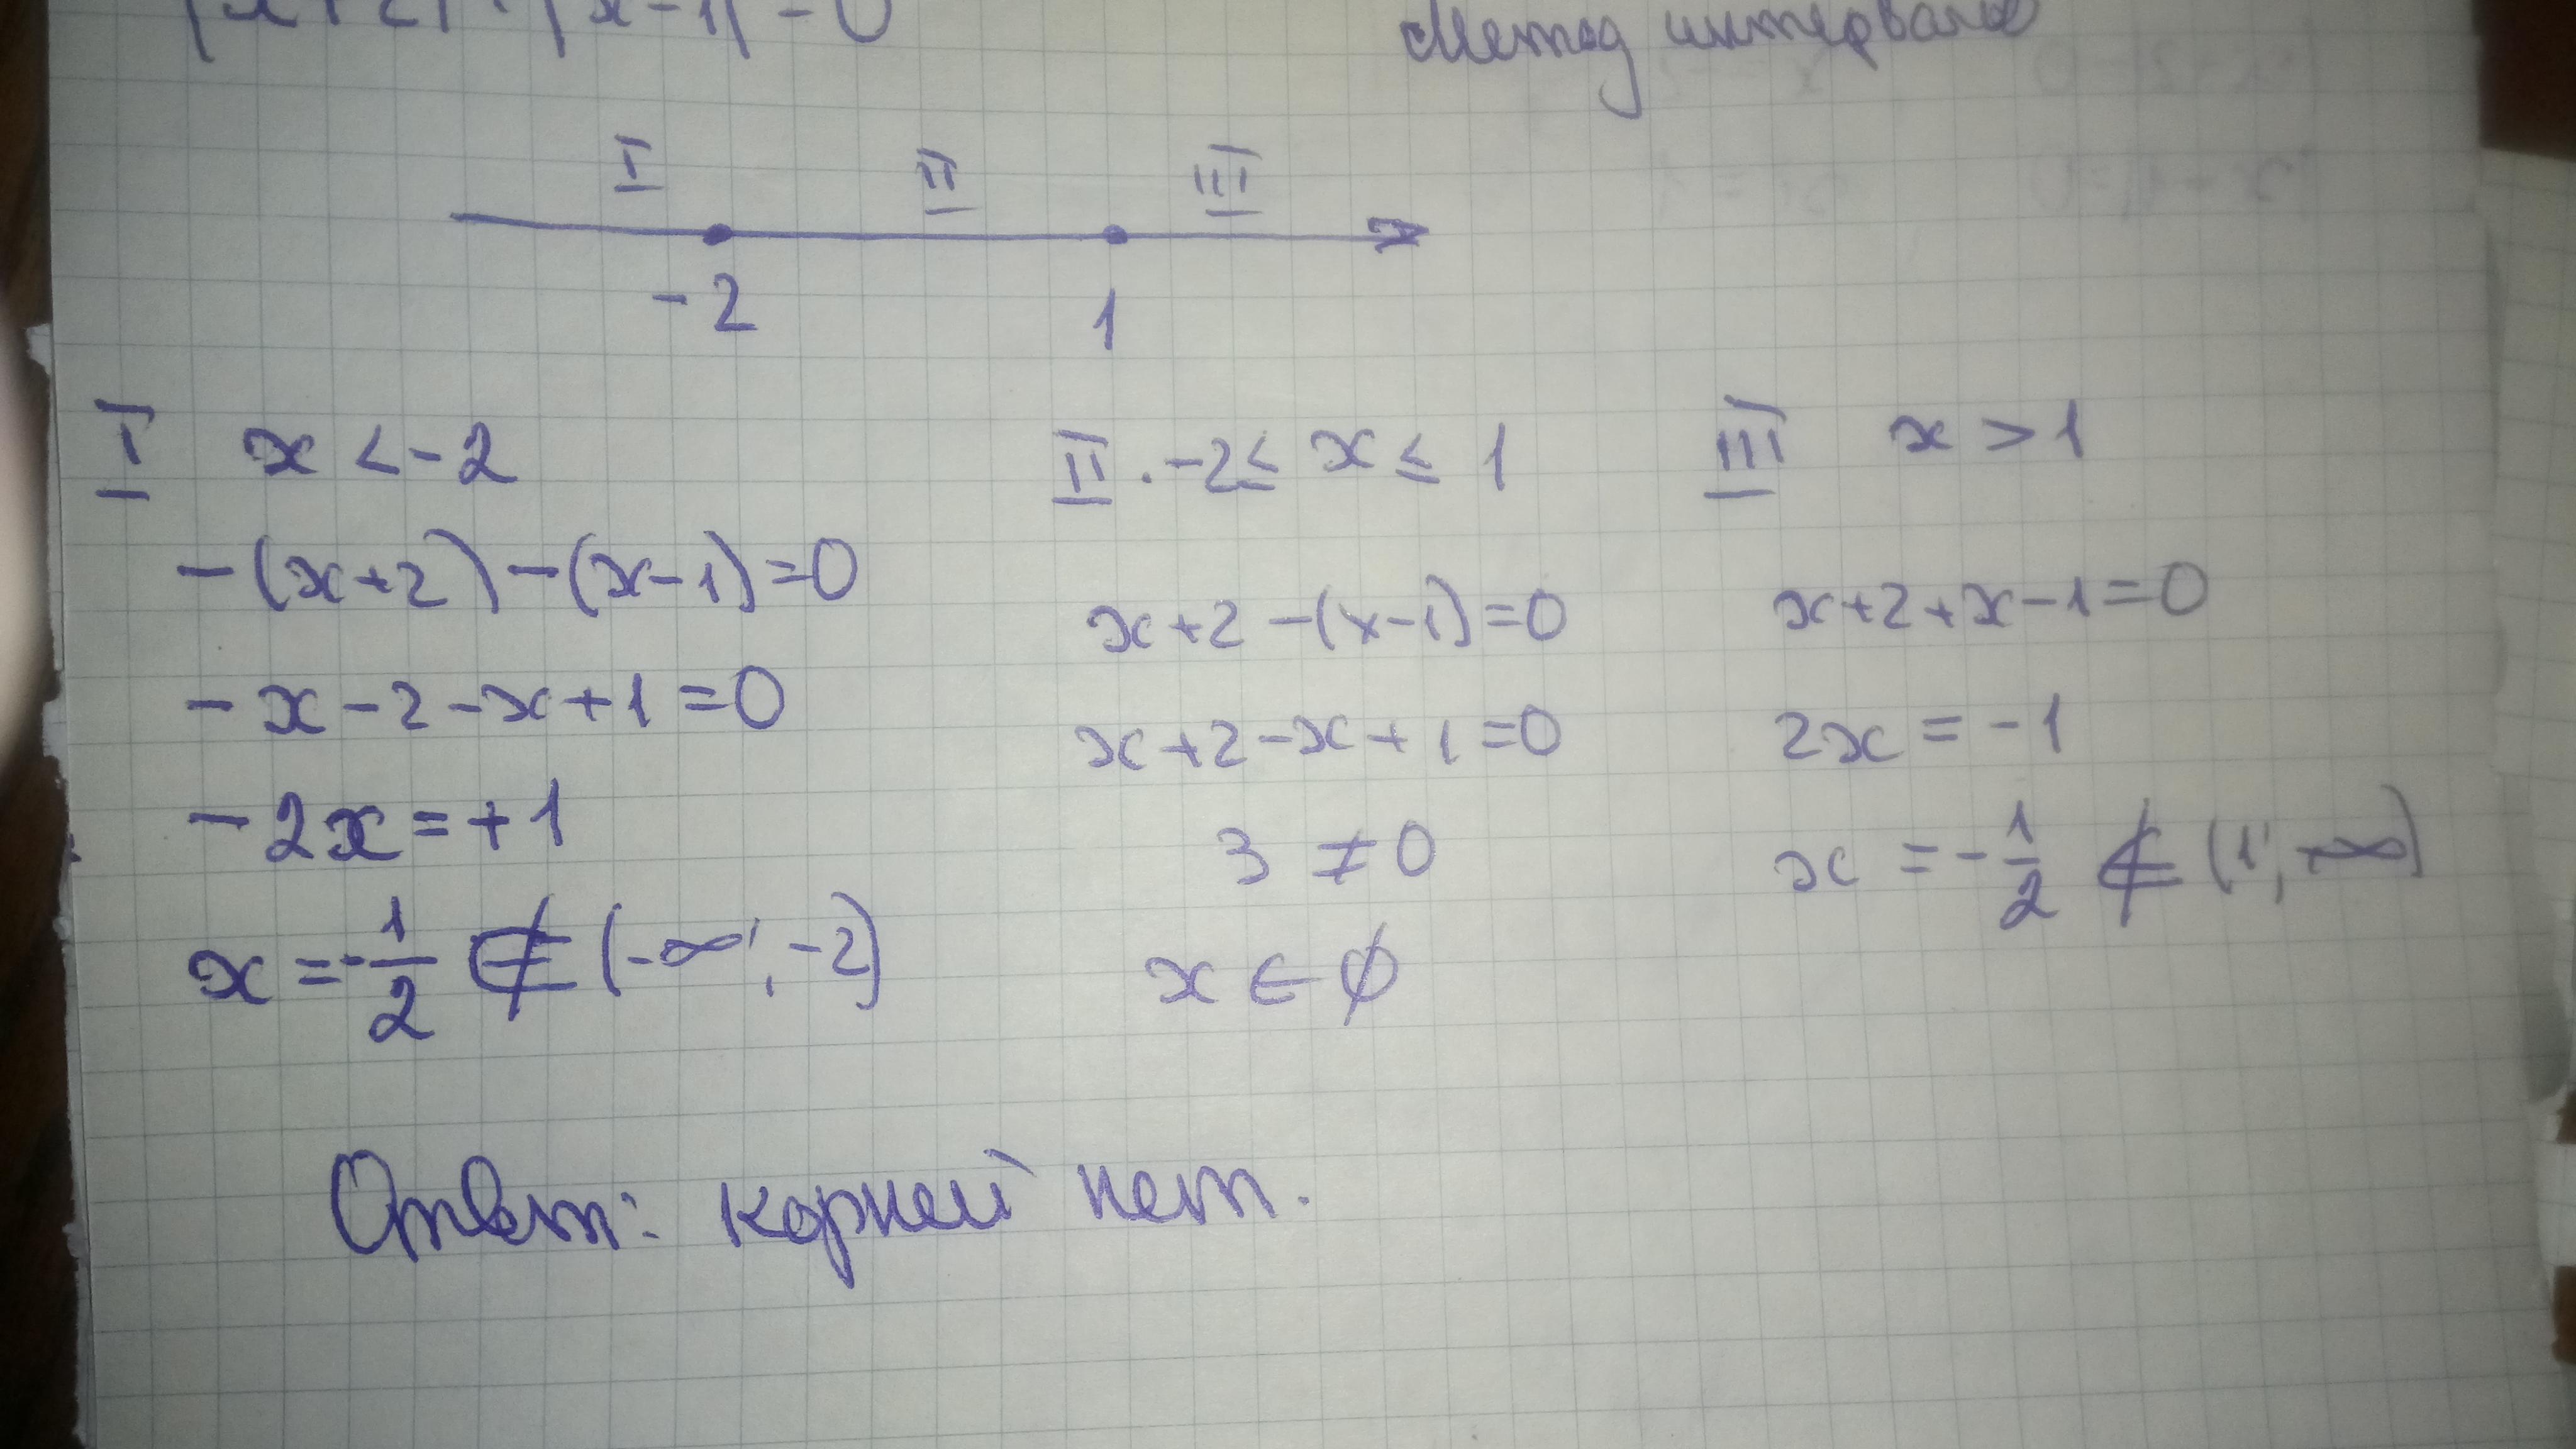 |x+2|+|x-1|=0
Метод интервалов
I II III
-2 1
I x < -2
-(x+2)-(x-1)=0
-x-2-x+1=0
-2x=+1
x=-1/2 ∉ (-∞; -2)
II. -2≤ x ≤ 1
x+2-(x-1)=0
x+2-x+1=0
3 ≠ 0
x ∈ ∅
III x > 1
x+2+x-1=0
2x = -1
x = -1/2 ∉ (1; +∞)
Ответ: корней нет.